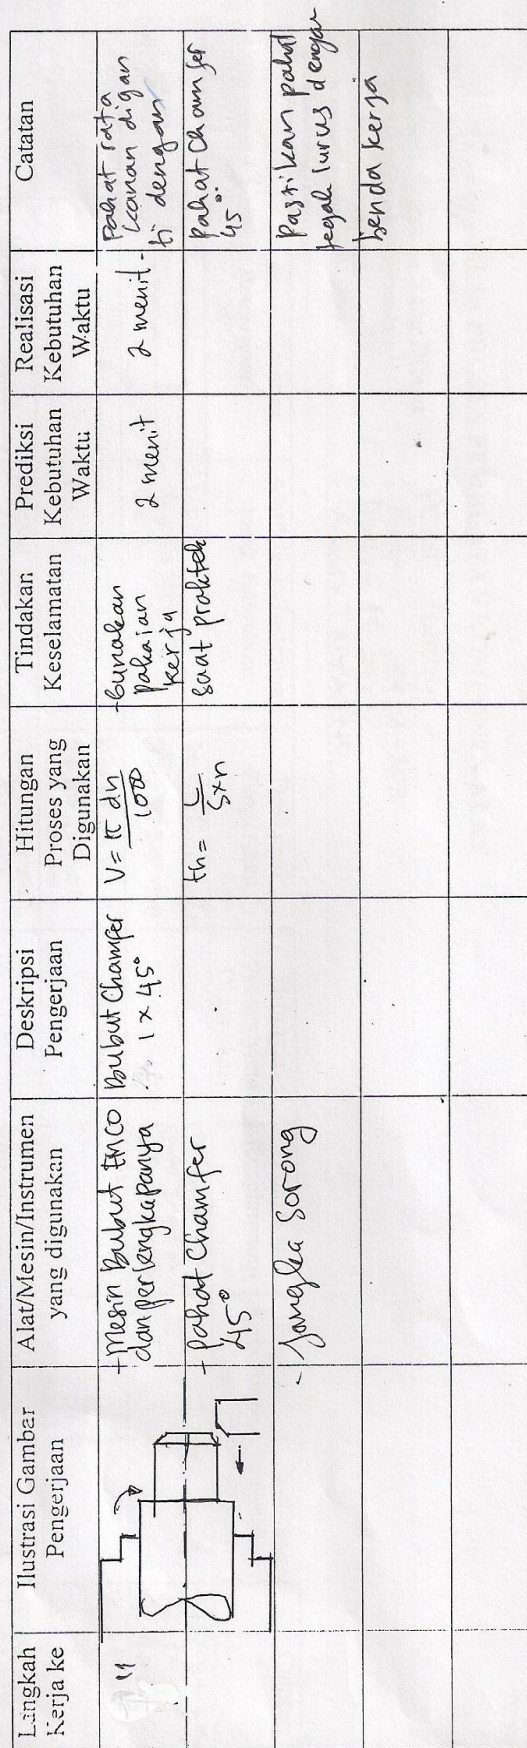 Langkah
Kerja ke
Ilustrasi Gambar
Pengerjaan
Alat/Mesin/Instrumen
yang digunakan
Deskripsi
Pengerjaan
Hitungan
Proses yang
Digunakan
Tindakan
Keselamatan
Prediksi
Kebutuhan
Waktu
Realisasi
Kebutuhan
Waktu
Catatan
11
- Mesin Bubut EMCO
dan perlengkapanya
Bubut Chamfer
1 x 45°
V = π dn
1000
- Gunakan
pakaian
kerja
2 menit
2 menit
Pahat rata
kanan digan
ti dengan
- Pahat Chamfer
45°
th = L
S x n
saat praktek
pahat Chamfer
45°
- Jangka Sorong
Pastikan pahat
tegak lurus dengan
benda kerja